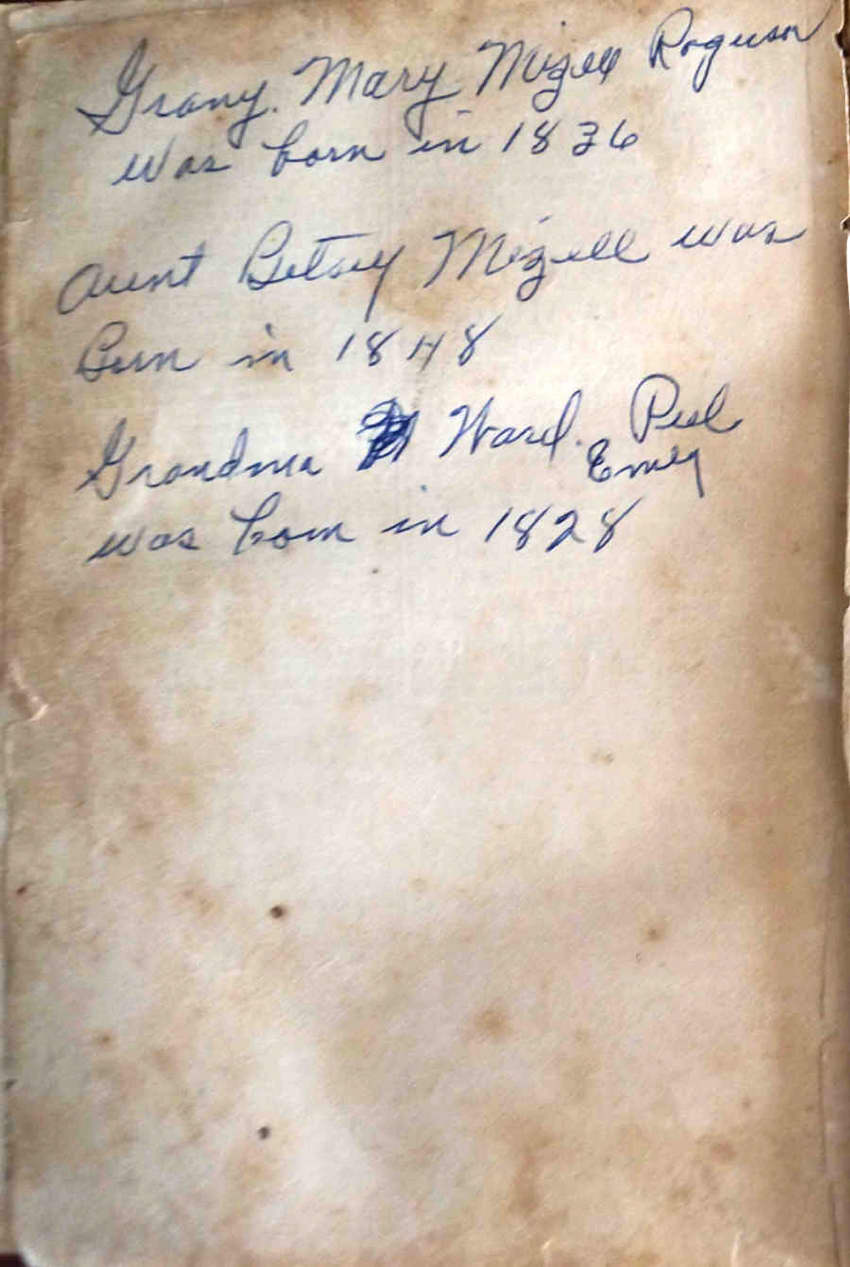 Grany. Mary Mizell Roguson
was born in 1836
Aunt Betsey Mizell was
Born in 1848
Grandma Ward. Peel
Emily
was born in 1828